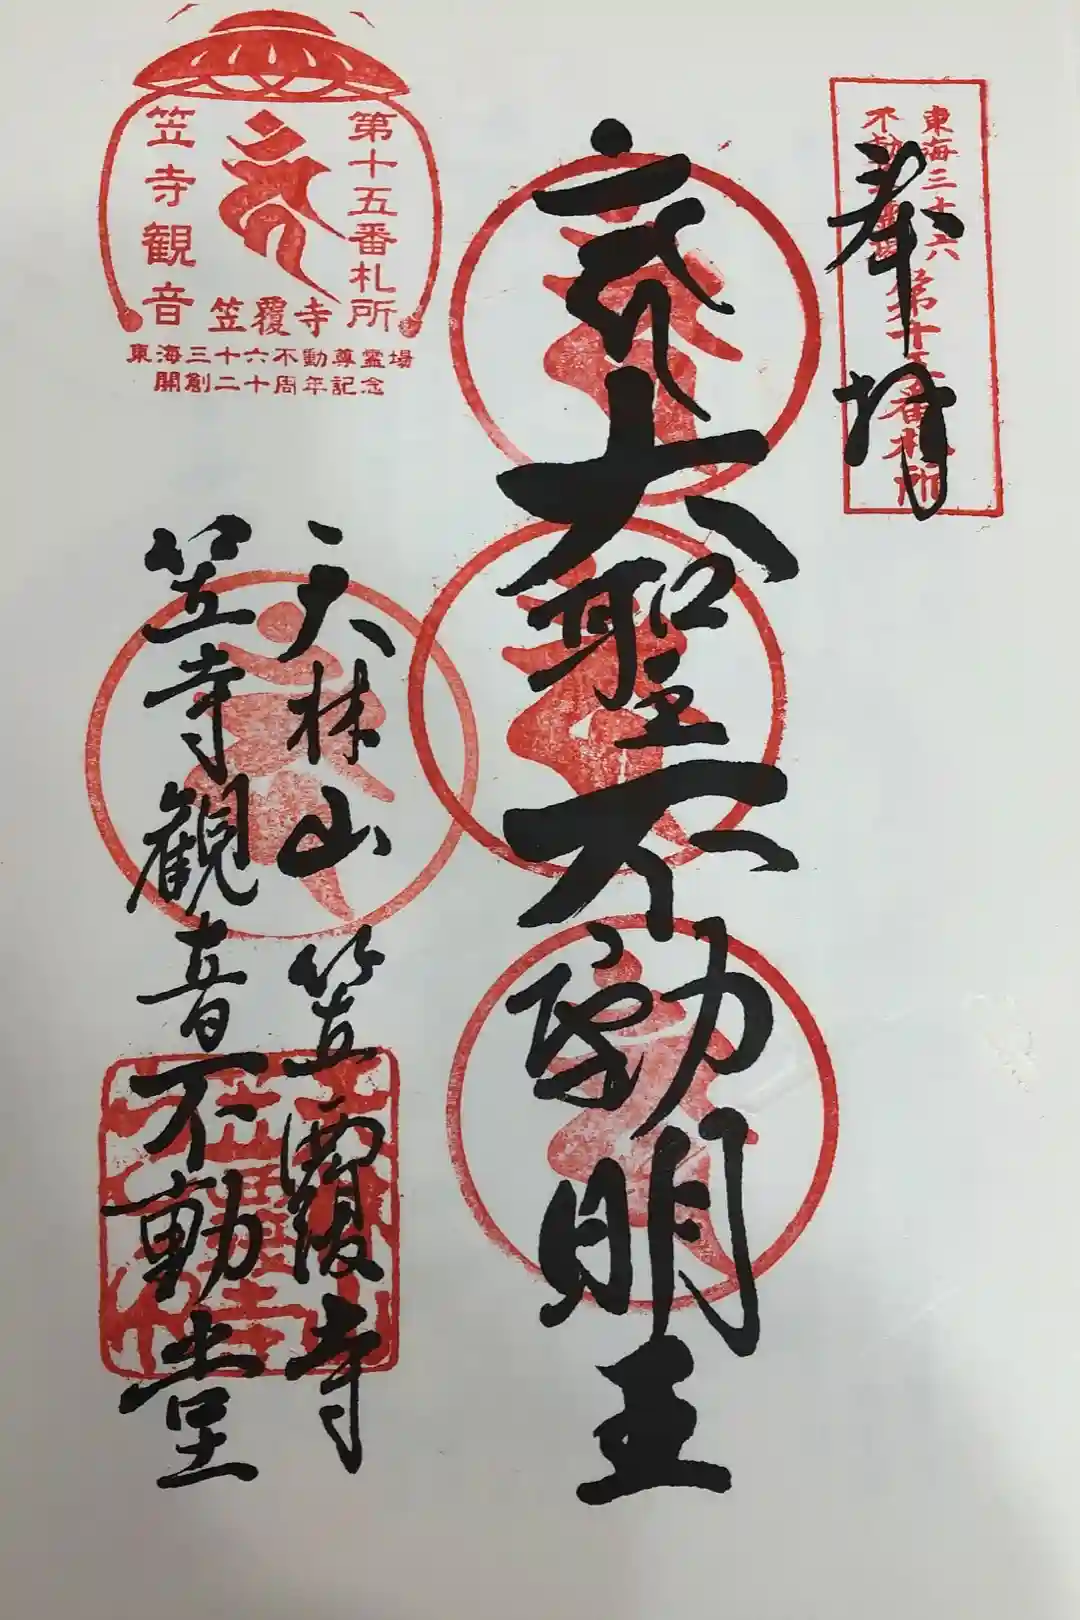 東海三十六
不動尊霊場
第十五番札所
奉拝
大聖不動明王
第十五番札所
笠寺観音
笠覆寺
東海三十六不動尊霊場
開創二十周年記念
天林山 笠覆寺
笠寺観音不動堂